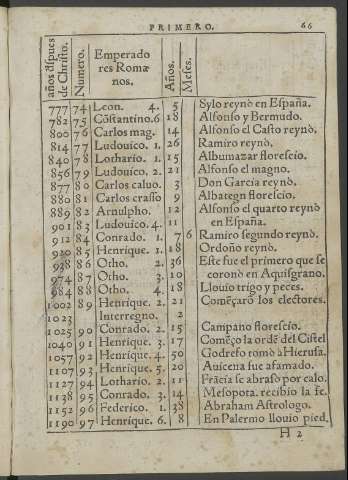 PRIMERO. 66
años dsṗues de Christo. Numero. Emperado res Romanos. Años. Meses.
777 74 Leon. 4. 5 Sylo reynò en España.
782 75 Cōstantino.6 18 Alfonso y Bermudo.
800 76 Carlos mag. 14 Alfonso el Casto reynò.
814 77 Ludouico. 1. 26 Ramiro reynò.
840 78 Lothario. 1. 15 Albumazar florescio.
856 79 Ludouico. 2. 21 Alfonso el magno.
877 80 Carlos caluo. 3 Don Garcia reynò.
880 81 Carlos crasso 9 Albategn florescio.
889 82 Arnulpho. 12 Alfonso el quarto reynò
901 83 Ludouico. 4. 11 en España.
912 84 Conrado. 1. 7 6 Ramiro segundo reynò.
920 85 Henrique. 1. 18 Ordoño reynò.
938 86 Otho. 2. 36 Este fue el primero que se
974 87 Otho. 3. 10 coronò en Aquisgrano.
984 88 Otho. 4. 18 Llouio trigo y peces.
1002 89 Henrique. 2. 21 Comēçarō los electores.
1023 Interregno. 2
1025 90 Conrado. 2. 15 Campano florescio.
1040 91 Henrique. 3. 17 Comēço la ordē del Cistel
1057 92 Henrique. 4. 50 Godrefo tomò a Hierusa.
1107 93 Henrique. 5. 20 Auicena fue afamado.
1127 94 Lothario. 2. 11 Frācia se abraso por calo.
1138 95 Conrado. 3. 14 Mesopota. recibio la fe.
1152 96 Federico. 1. 38 Abraham Astrologo.
1190 97 Henrique. 6. 8 En Palermo llouio pied.
H 2